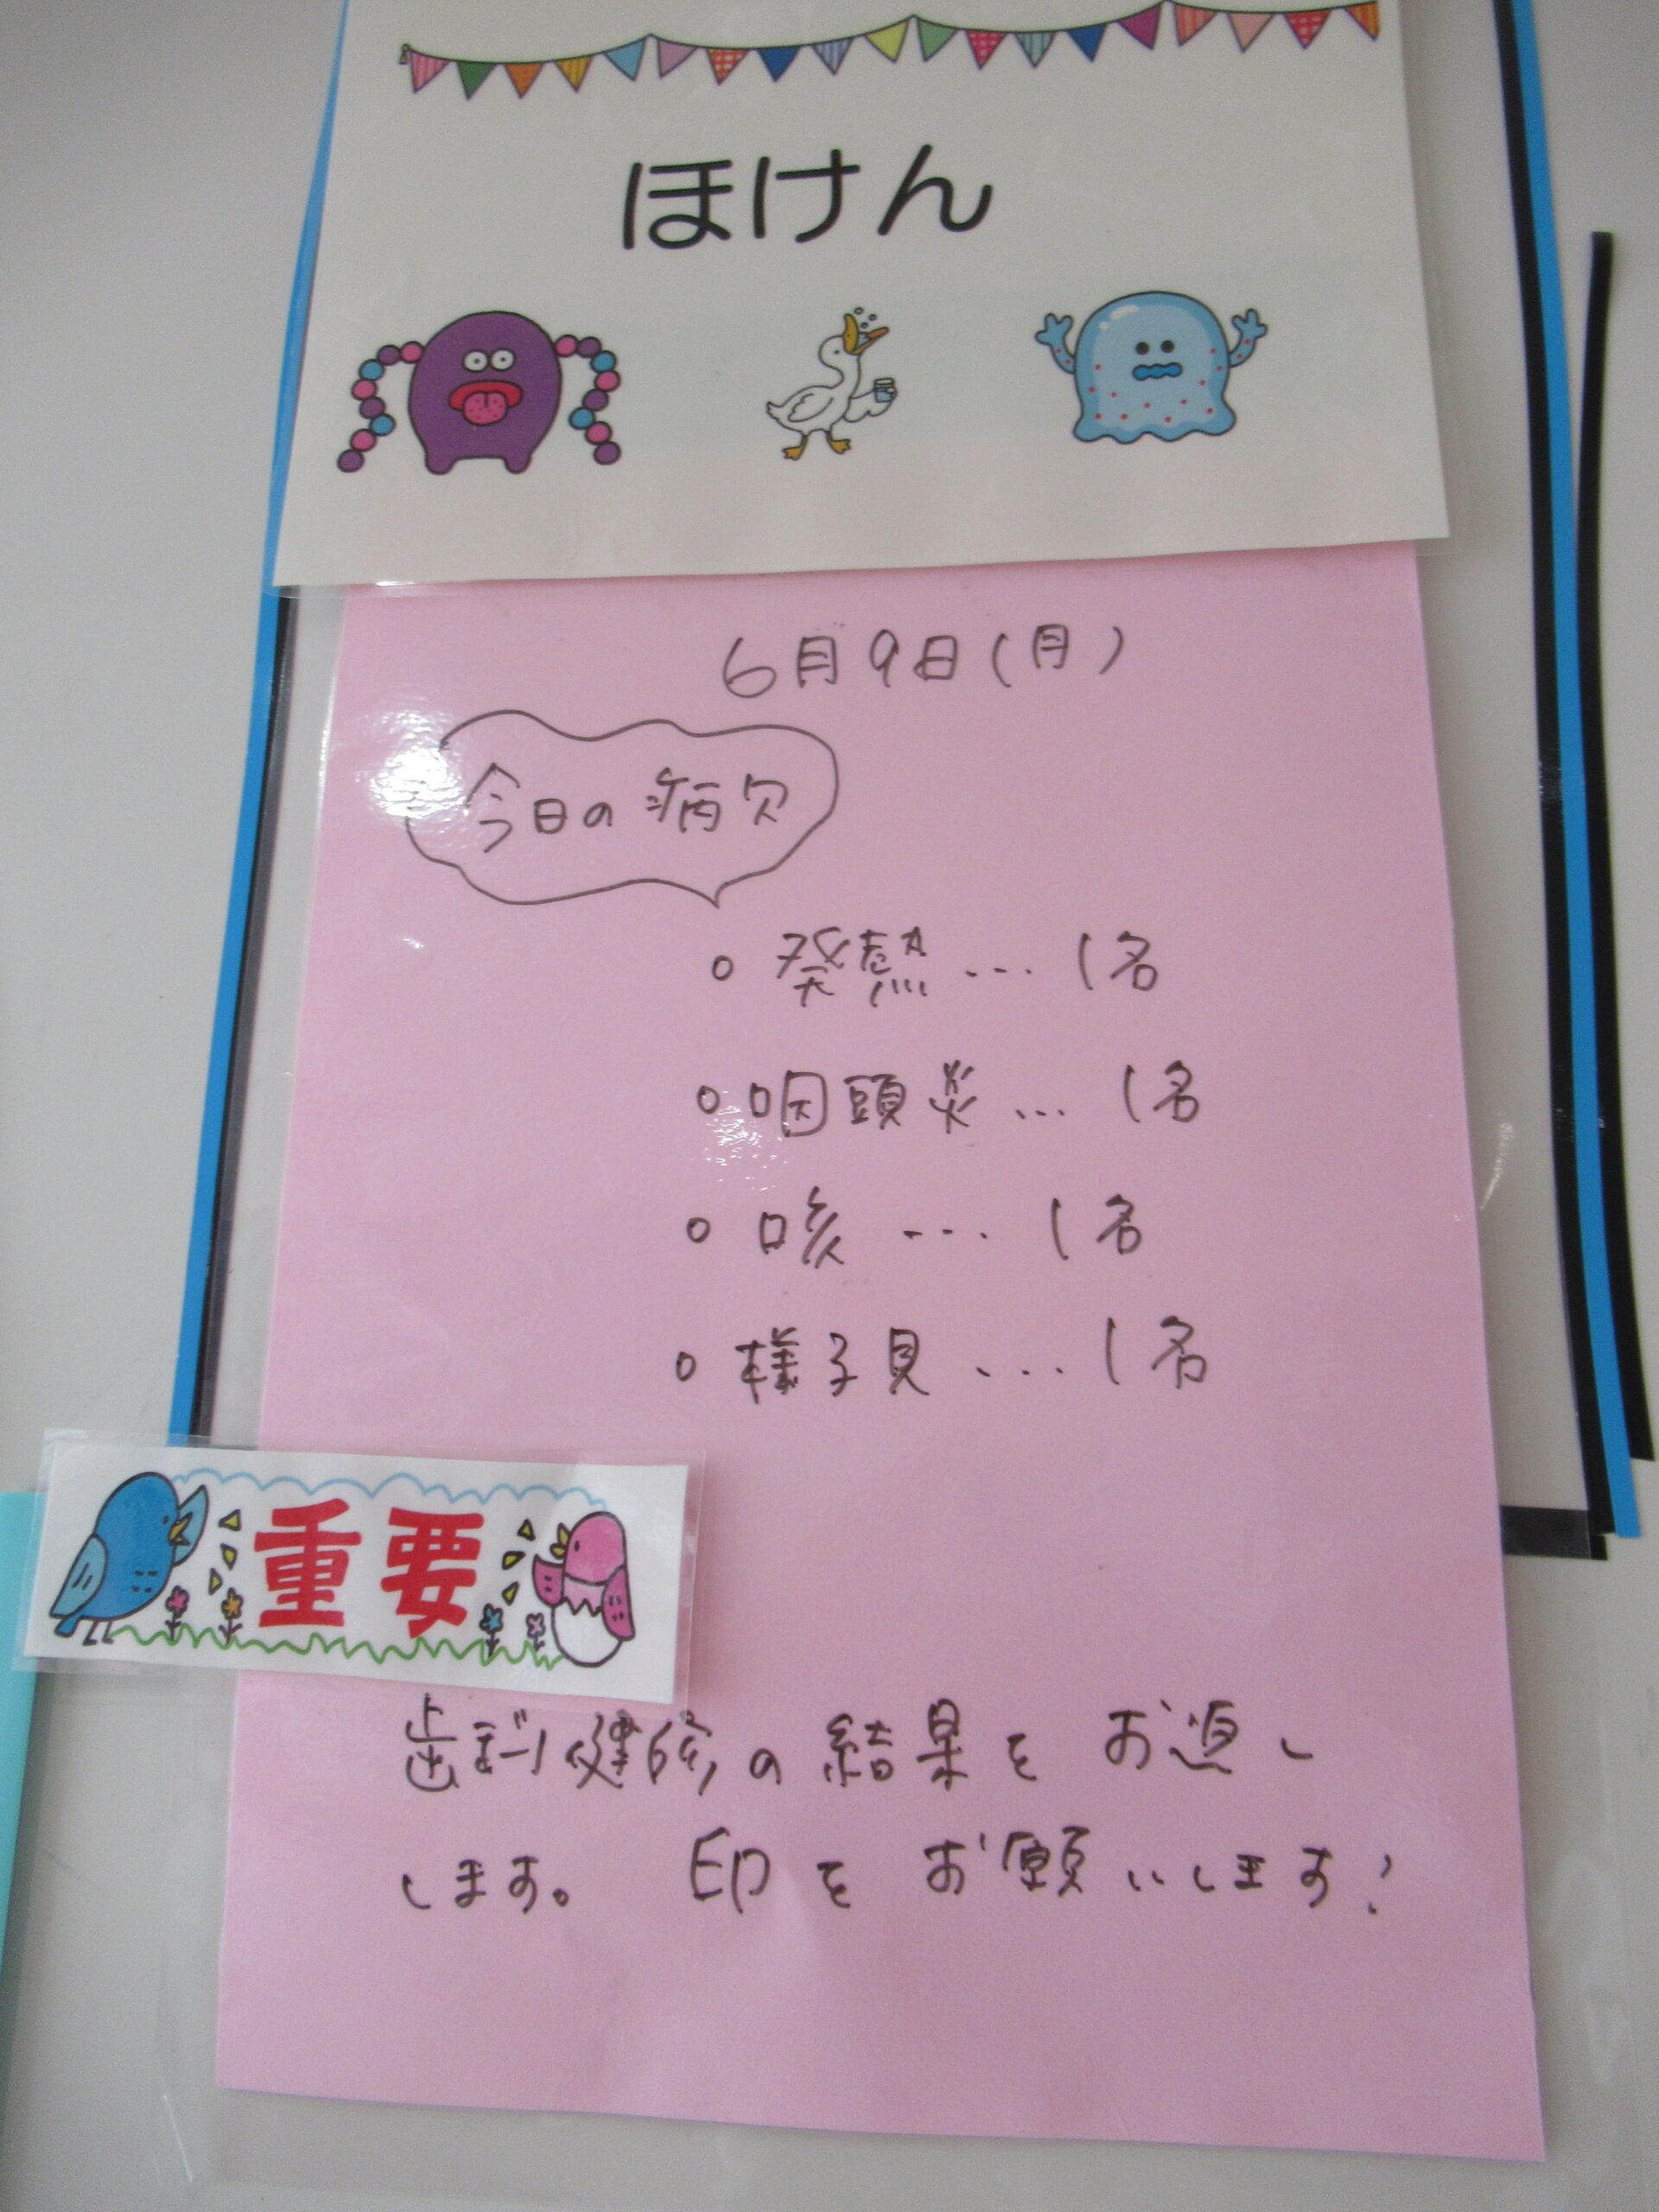 ほけん
6月9日(月)
今日の病欠
○ 発熱 … 1名
○ 咽頭炎 … 1名
○ 咳 … 1名
○ 様子見 … 1名
重要
歯科健診の結果をお返し
します。 印をお願いします!